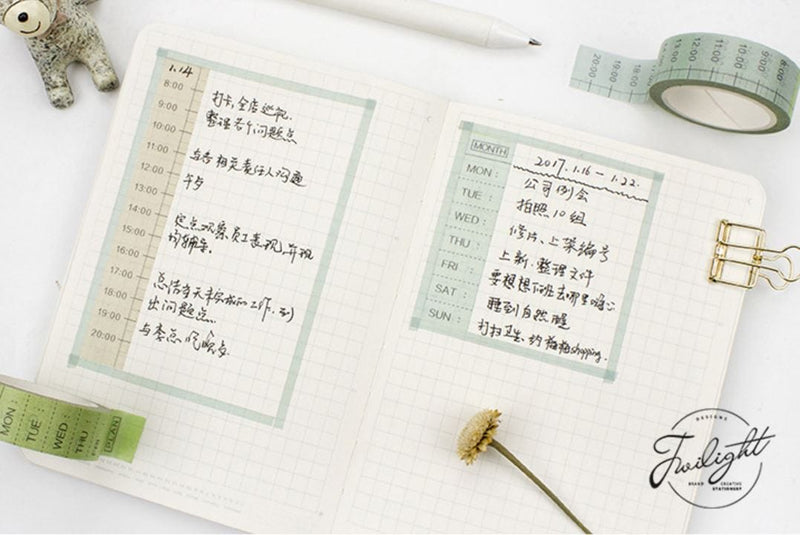 1.14
8:00
9:00
10:00
11:00
12:00
13:00
14:00
15:00
16:00
17:00
18:00
19:00
20:00
打卡,全店巡视.
整理若个问题点
与各相关责任人沟通
午歺
定点观察员工表现,并现
均辅导.
总结今天未完成的工作,列
出问题点.
与李总吃晚歺.
MONTH
2017.1.16 - 1.22.
MON: 公司例会
TUE: 拍照10组
WED: 修片、上架编号
THU: 上新.整理文件
FRI: 要想想下班去哪里嗨心
SAT: 睡到自然醒
SUN: 打扫卫生、约梅梅shopping.
20:00 19:00 18:00
13:00 12:00 11:00 10:00 9:00 8:00
MON: TUE: WED: THU: PLAN
DESIGNS
Twilight
BRAND CREATIVE
STATIONERY